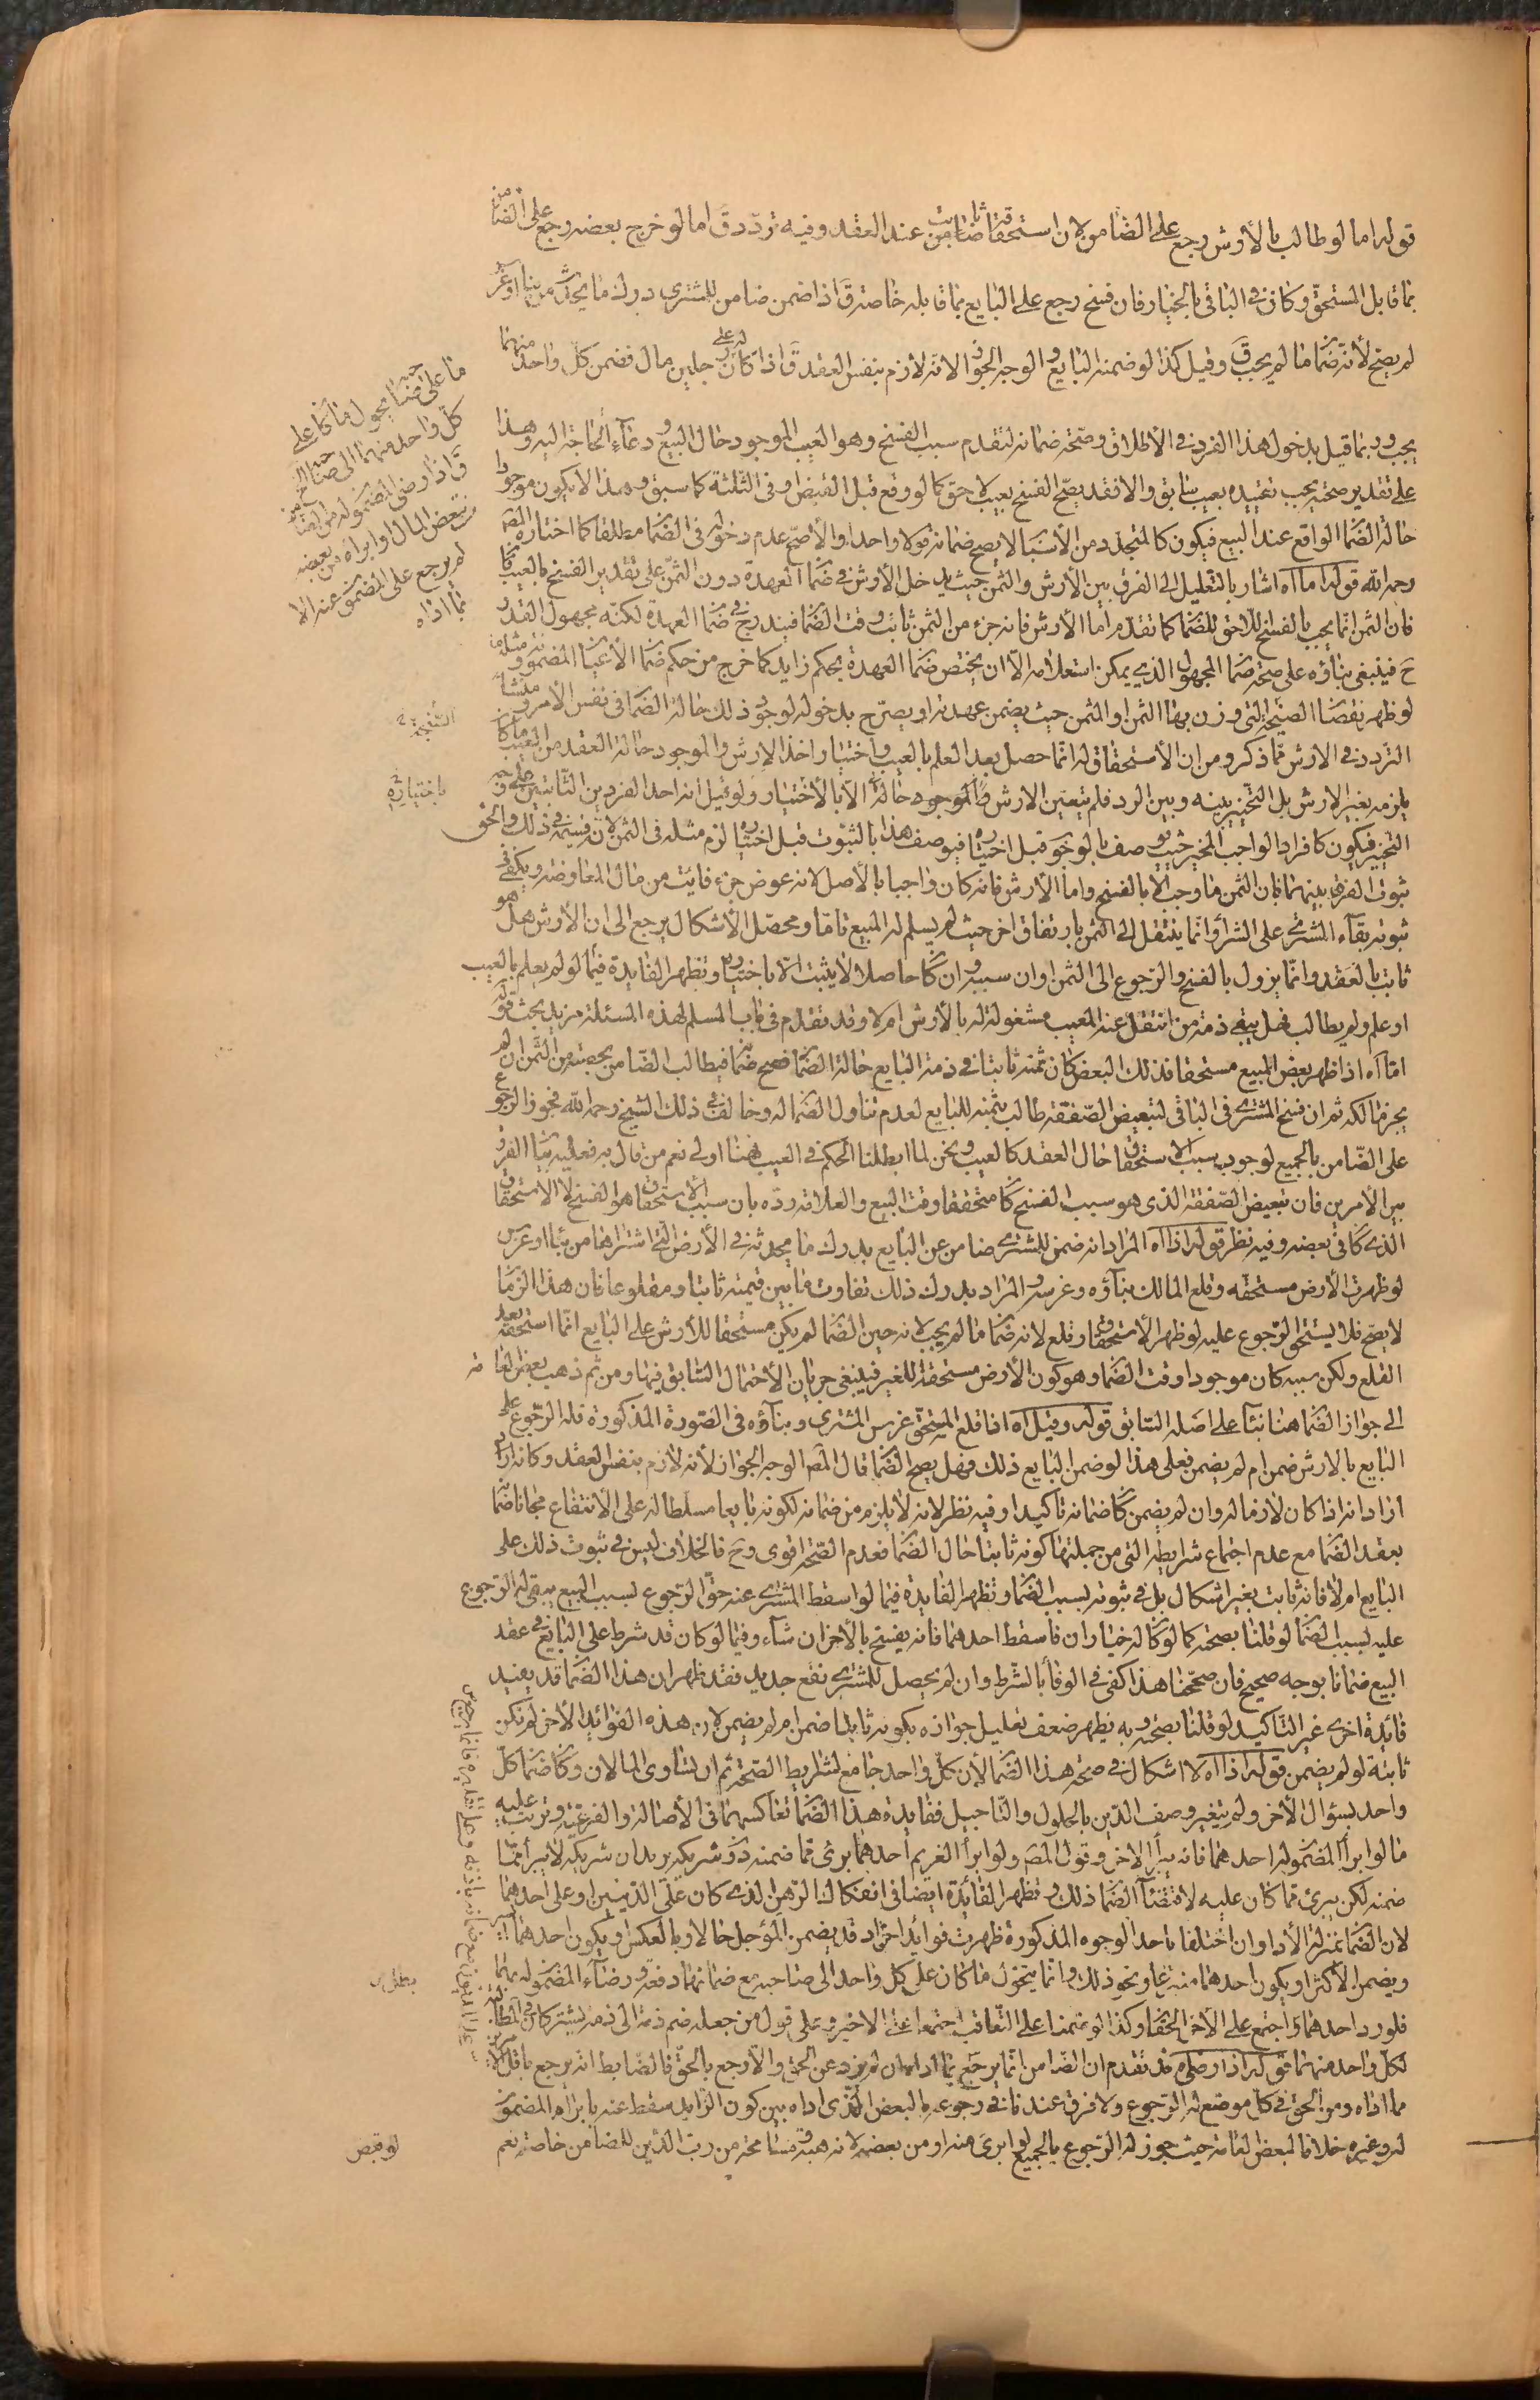 قوله اما لو طالب بالأرش رجع على الضامن لان استحقاقه ثابت عند العقد وفيه تردد ق اما لو خرج بعضه رجع على الضامن
بما قابل المستحق وكان في الباقي بالخيار فان فسخ رجع على البايع بما قابله خاصة ق اذا ضمن ضامن للمشتري درك ما يحدث من بناء او غرس
لم يصح لأنه ضمان ما لم يجب ق وقيل كذا لو ضمنه البايع والوجه الجواز لانه لازم بنفس العقد ق اذا كان له على رجلين مال فضمن كل واحد منهما
ما على صاحبه تحول ما كان على
كل واحد منهما الى صاحبه
ق اذا رضي المضمون له من الضامن
ببعض المال او ابراه من بعضه
لم يرجع على المضمون عنه الا
بما اداه
يجب وربما قيل بدخول هذا الفرد في الأطلاق وصحة ضمانه لتقدم سبب الفسخ وهو العيب الموجود حال البيع ودعاء الحاجة اليه وهذا
على تقدير صحته يجب تقييده بعيب سابق والا فقد يصح الفسخ بعيب لاحق كما لو وقع قبل القبض او في الثلثة كما سبق وهذا لا يكون موجودا
حالة الضمان الواقع عند البيع فيكون كالمتجدد من الأسباب لا يصح ضمانه قولا واحدا والأصح عدم دخوله في الضمان مطلقا كما اختاره المص
رحمه الله قوله اما اه اشار بالتعليل الى الفرق بين الأرش والثمن حيث يدخل الأرش في ضمان العهدة دون الثمن على تقدير الفسخ بالعيب
فان الثمن انما يجب بالفسخ اللاحق للضمان كما تقدم اما الأرش فانه جزء من الثمن ثابت وقت الضمان فيندرج في ضمان العهدة لكنه مجهول القدر
ح فينبغي بناؤه على صحة ضمان المجهول الذي يمكن استعلامه الا ان يختص ضمان العهدة بحكم زايد كما خرج من حكم ضمان الأعيان المضمونة
لو ظهر نقصان الصنجة التي وزن بها الثمن او المثمن حيث يضمن عهدته او يصرح بدخوله لوجود ذلك حالة الضمان في نفس الأمر ومنشأ
التردد في الارش مما ذكر ومن ان الأستحقاق له انما حصل بعد العلم بالعيب واختيار اخذ الارش والموجود حالة العقد من العيب ما كان
يلزمه تغير الارش بل التخيير بينه وبين الرد فلم يتعين الارش الا بالأختيار ولو قيل انه احد الفردين الثابتين على وجه
باختياره
التخيير فيكون كافراد الواجب المخير حيث يوصف بالوجوب قبل اختياره فيوصف هذا بالثبوت قبل اختياره لزم مثله في الثمن لانه قسيمه في ذلك والحق
ثبوت الفرق بينهما فان الثمن ما وجب الا بالفسخ واما الأرش فانه كان واجبا بالأصل لانه عوض جزء فايت من مال المعاوضة ويكفي في
ثبوته بقاء المشتري على الشراء وانما ينتقل الى الثمن بارتفاق اخر حيث لم يسلم له المبيع تاما ومحصل الأشكال يرجع الى ان الأرش هل هو
ثابت بالعقد وانما يزول بالفسخ والرجوع الى الثمن او ان سببه وان كان حاصلا لا يثبت الا باختياره وتظهر الفايدة فيما لو لم يعلم بالعيب
او علم ولم يطالب فهل يبقى ذمة من انتقل عنه المعيب مشغولة له بالأرش ام لا وقد تقدم في باب السلم لهذه المسئلة مزيد بحث قوله
اما اه اذا ظهر بعض المبيع مستحقا فذلك البعض كان ثمنه ثابتا في ذمة البايع حالة الضمان فصح ضمانه فيطالب الضامن بحصته من الثمن ان لم
يجز مالكه ثم ان فسخ المشتري في الباقي لتبعيض الصفقة طالب بثمنه للبايع لعدم تناول الضمان له وخالف في ذلك الشيخ رحمه الله فجوز الرجوع
على الضامن بالجميع لوجود سبب الاستحقاق حال العقد كالعيب ونحن لما ابطلنا الحكم في العيب فهنا اولى نعم من قال به فعليه بيان الفرق
بين الأمرين فان تبعيض الصفقة الذي هو سبب الفسخ كان متحققا وقت البيع والعلامة رده بان سبب الأستحقاق هو الفسخ لا الأستحقاق
الذي كان في بعضه وفيه نظر قوله اذا اه المراد انه ضمن للمشتري ضامن عن البايع بدرك ما يحدثه في الأرض التي اشتراها من بناء او غرس
لو ظهرت الأرض مستحقه وقلع المالك بناؤه وغرسه والمراد بدرك ذلك تفاوت ما بين قيمته ثابتا ومقلوعا فان هذا الزمان
لا يصح فلا يستحق الرجوع عليه لو ظهر الأستحقاق وقلع لانه ضمان ما لم يجب لانه حين الضمان لم يكن مستحقا للأرش على البايع انما استحقه بعد
القلع ولكن سببه كان موجودا وقت الضمان وهو كون الأرض مستحقة للغير فينبغي جريان الأحتمال السابق فيها ومن ثم ذهب بعض العامة
الى جواز الضمان هنا بناء على اصله السابق قوله وقيل اه اذا قلع المستحق غرس المشتري وبناؤه في الصورة المذكورة فله الرجوع على
البايع بالارش ضمن ام لم يضمن فعلى هذا لو ضمن البايع ذلك فهل يصح الضمان قال المص الوجه الجواز لأنه لازم بنفس العقد وكانه
اراد انه اذا كان لازما له وان لم يضمن كان ضمانه تأكيدا وفيه نظر لانه لا يلزم من ضمانه لكونه بايعا مسلطا له على الانتفاع مجانا ضمانه
بعقد الضمان مع عدم اجتماع شرايطه التي من جملتها كونه ثابتا حال الضمان فعدم الصحة اقوى وح فالخلاف ليس في ثبوت ذلك على
البايع ام لا فانه ثابت بغير اشكال بل في ثبوته بسبب الضمان وتظهر الفايدة فيما لو اسقط المشتري عنه حق الرجوع بسبب البيع يبقى له الرجوع
عليه بسبب الضمان لو قلنا بصحته كما لو كان له خياران فاسقط احدهما فانه يفسخ بالأخر ان شاء وفيما لو كان قد شرط على البايع في عقد
البيع ضمانا بوجه صحيح فان صححنا هذا كفى في الوفاء بالشرط وان لم يحصل للمشتري نفع جديد فقد ظهر ان هذا الضمان قد يفيد
فائدة اخرى غير التأكيد لو قلنا بصحته وبه يظهر ضعف تعليل جوازه بكونه ثابتا ضمن ام لم يضمن لان هذه الفوائد الأخر لم تكن
ثابتة لو لم يضمن قوله اذا اه لا اشكال في صحة هذا الضمان لأن كل واحد جامع لشرايط الصحة ثم ان تساوى المالان وكان ضمان كل
واحد بسؤال الأخر ولم يتغير وصف الدين بالحلول والتاجيل ففايدة هذا الضمان تعاكسهما في الأصالة والفرعية ويترتب عليه
ما لو ابرأ المضمون له احدهما فانه يبرأ الاخر وقول المص ولو ابرأ الغريم احدهما برئ مما ضمنه دون شريكه يريد ان شريكه لا يبرأ مما
ضمنه لكن يبرئ مما كان عليه لاقتضاء الضمان ذلك وتظهر الفائدة ايضا في انفكاك الرهن الذي كان على الدينين او على احدهما
لان الضمان بمنزلة الأداء وان اختلفا باحد الوجوه المذكورة ظهرت فوايد اخر اذ قد يضمن المؤجل حالا وبالعكس او يكون احدهما
ويضمن الأكثر او يكون احدهما متبرعا ونحو ذلك وانما يتحول ما كان على كل واحد الى صاحبه مع ضمانهما دفعة ورضاء المضمون له بهما
فلو رد احدهما اجتمع على الأخر الحقان وكذا لو ضمنا على التعاقب اجتمعا على الاخير وعلى قول من جعله ضم ذمة الى ذمة يشتركان في المطالبة
لكل واحد منهما قوله اذا رضي اه قد تقدم ان الضامن انما يرجع بما اداه ان لم يزد عن الحق والا رجع بالحق فالضابط انه يرجع باقل الأمرين
مما اداه ومن الحق في كل موضع له الرجوع ولا فرق عندنا في رجوعه بالبعض الذي اداه بين كون الزايد سقط عنه بابراء المضمون
له وغيره خلافا لبعض العامة حيث جوز له الرجوع بالجميع لو ابرئ منه او من بعضه لانه هبة ومسامحة من رب الدين للضامن خاصة نعم
لو قبض